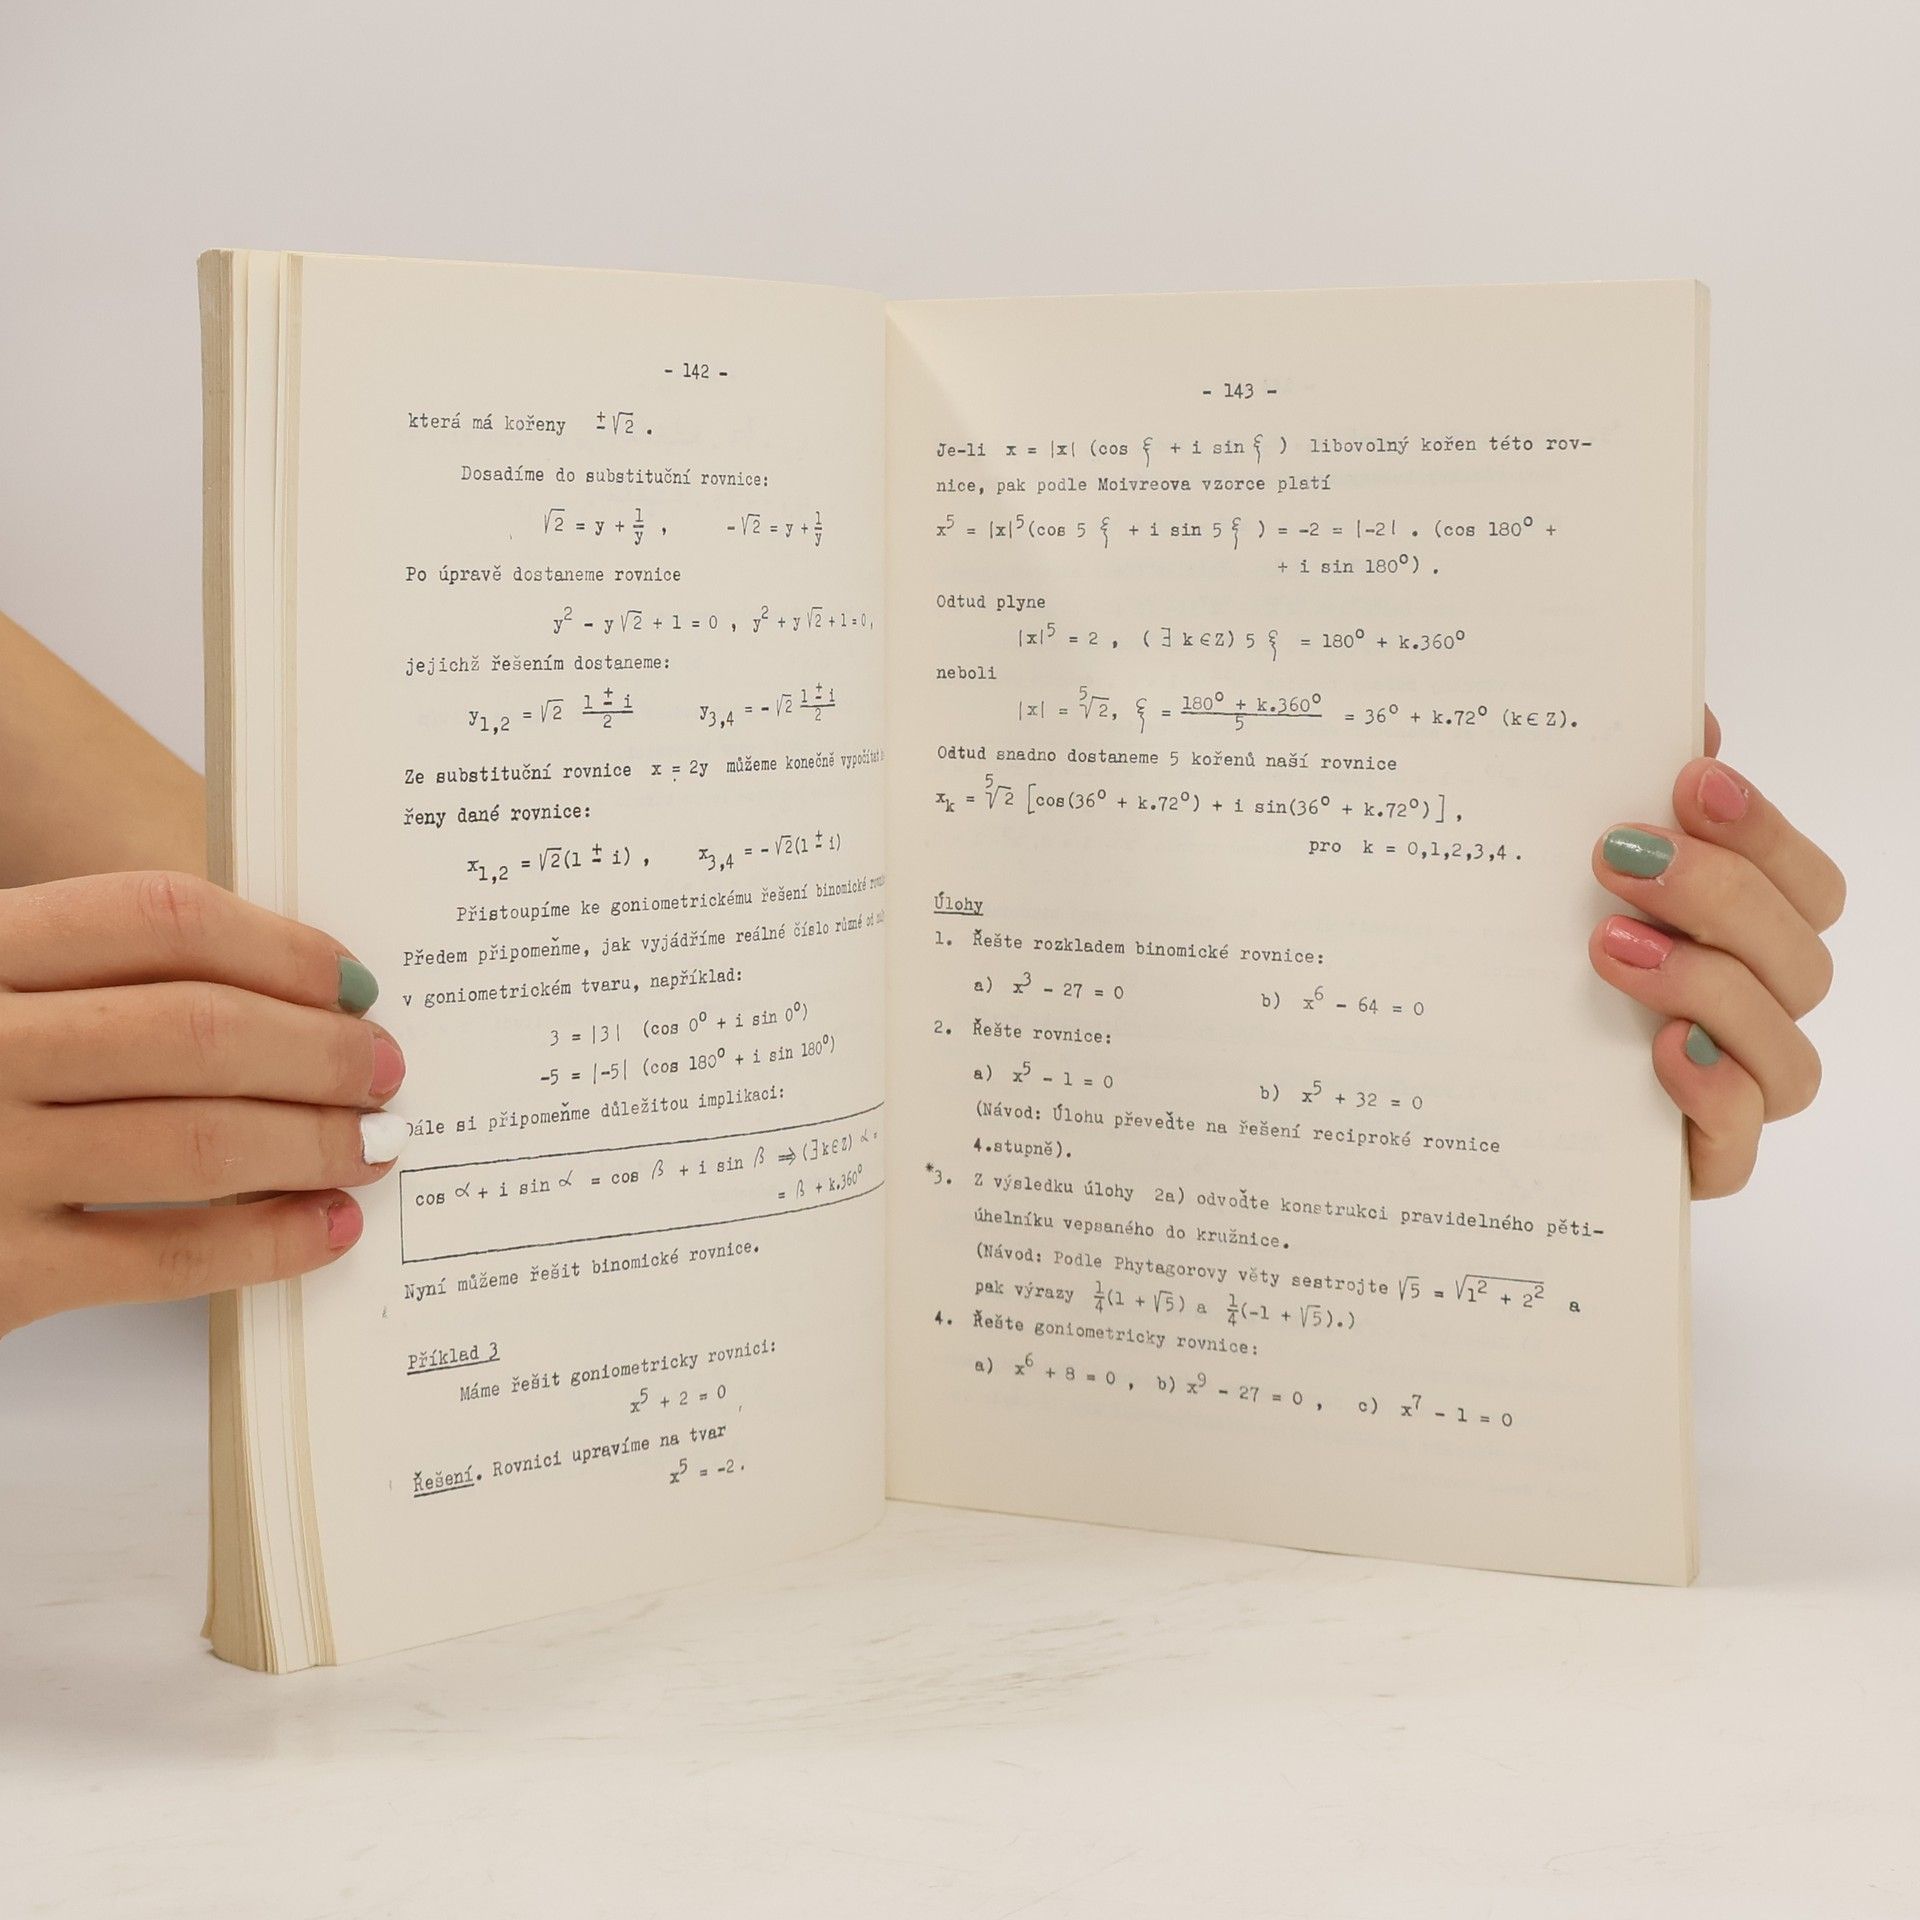 - 142 -
která má kořeny ±√2 .
Dosadíme do substituční rovnice:
√2 = y + 1/y , -√2 = y + 1/y
Po úpravě dostaneme rovnice
y² - y√2 + 1 = 0 , y² + y√2 + 1 = 0,
jejichž řešením dostaneme:
y₁,₂ = √2 (1 ± i)/2 y₃,₄ = -√2 (1 ± i)/2
Ze substituční rovnice x = 2y můžeme konečně vypočítat
řeny dané rovnice:
x₁,₂ = √2(1 ± i) , x₃,₄ = -√2(1 ± i)
Přistoupíme ke goniometrickému řešení binomické
Předem připomeňme, jak vyjádříme reálné číslo různé od
v goniometrickém tvaru, například:
3 = |3| (cos 0° + i sin 0°)
-5 = |-5| (cos 180° + i sin 180°)
Dále si připomeňme důležitou implikaci:
cos α + i sin α = cos β + i sin β ⇒ (∃k∈Z) α =
= β + k.360°
Nyní můžeme řešit binomické rovnice.
Příklad 3
Máme řešit goniometricky rovnici:
x⁵ + 2 = 0
Řešení. Rovnici upravíme na tvar
x⁵ = -2.
- 143 -
Je-li x = |x| (cos ξ + i sin ξ ) libovolný kořen této rov-
nice, pak podle Moivreova vzorce platí
x⁵ = |x|⁵(cos 5 ξ + i sin 5 ξ ) = -2 = |-2| . (cos 180° +
+ i sin 180°) .
Odtud plyne
|x|⁵ = 2 , (∃ k∈Z) 5 ξ = 180° + k.360°
neboli
|x| = ⁵√2, ξ = (180° + k.360°)/5 = 36° + k.72° (k∈Z).
Odtud snadno dostaneme 5 kořenů naší rovnice
xₖ = ⁵√2 [cos(36° + k.72°) + i sin(36° + k.72°)] ,
pro k = 0,1,2,3,4 .
Úlohy
1. Řešte rozkladem binomické rovnice:
a) x³ - 27 = 0 b) x⁶ - 64 = 0
2. Řešte rovnice:
a) x⁵ - 1 = 0 b) x⁵ + 32 = 0
(Návod: Úlohu převeďte na řešení reciproké rovnice
4.stupně).
*3. Z výsledku úlohy 2a) odvoďte konstrukci pravidelného pěti-
úhelníku vepsaného do kružnice.
(Návod: Podle Phytagorovy věty sestrojte √5 = √(1² + 2²) a
pak výrazy 1/4(1 + √5) a 1/4(-1 + √5).)
4. Řešte goniometricky rovnice:
a) x⁶ + 8 = 0 , b) x⁹ - 27 = 0 , c) x⁷ - 1 = 0